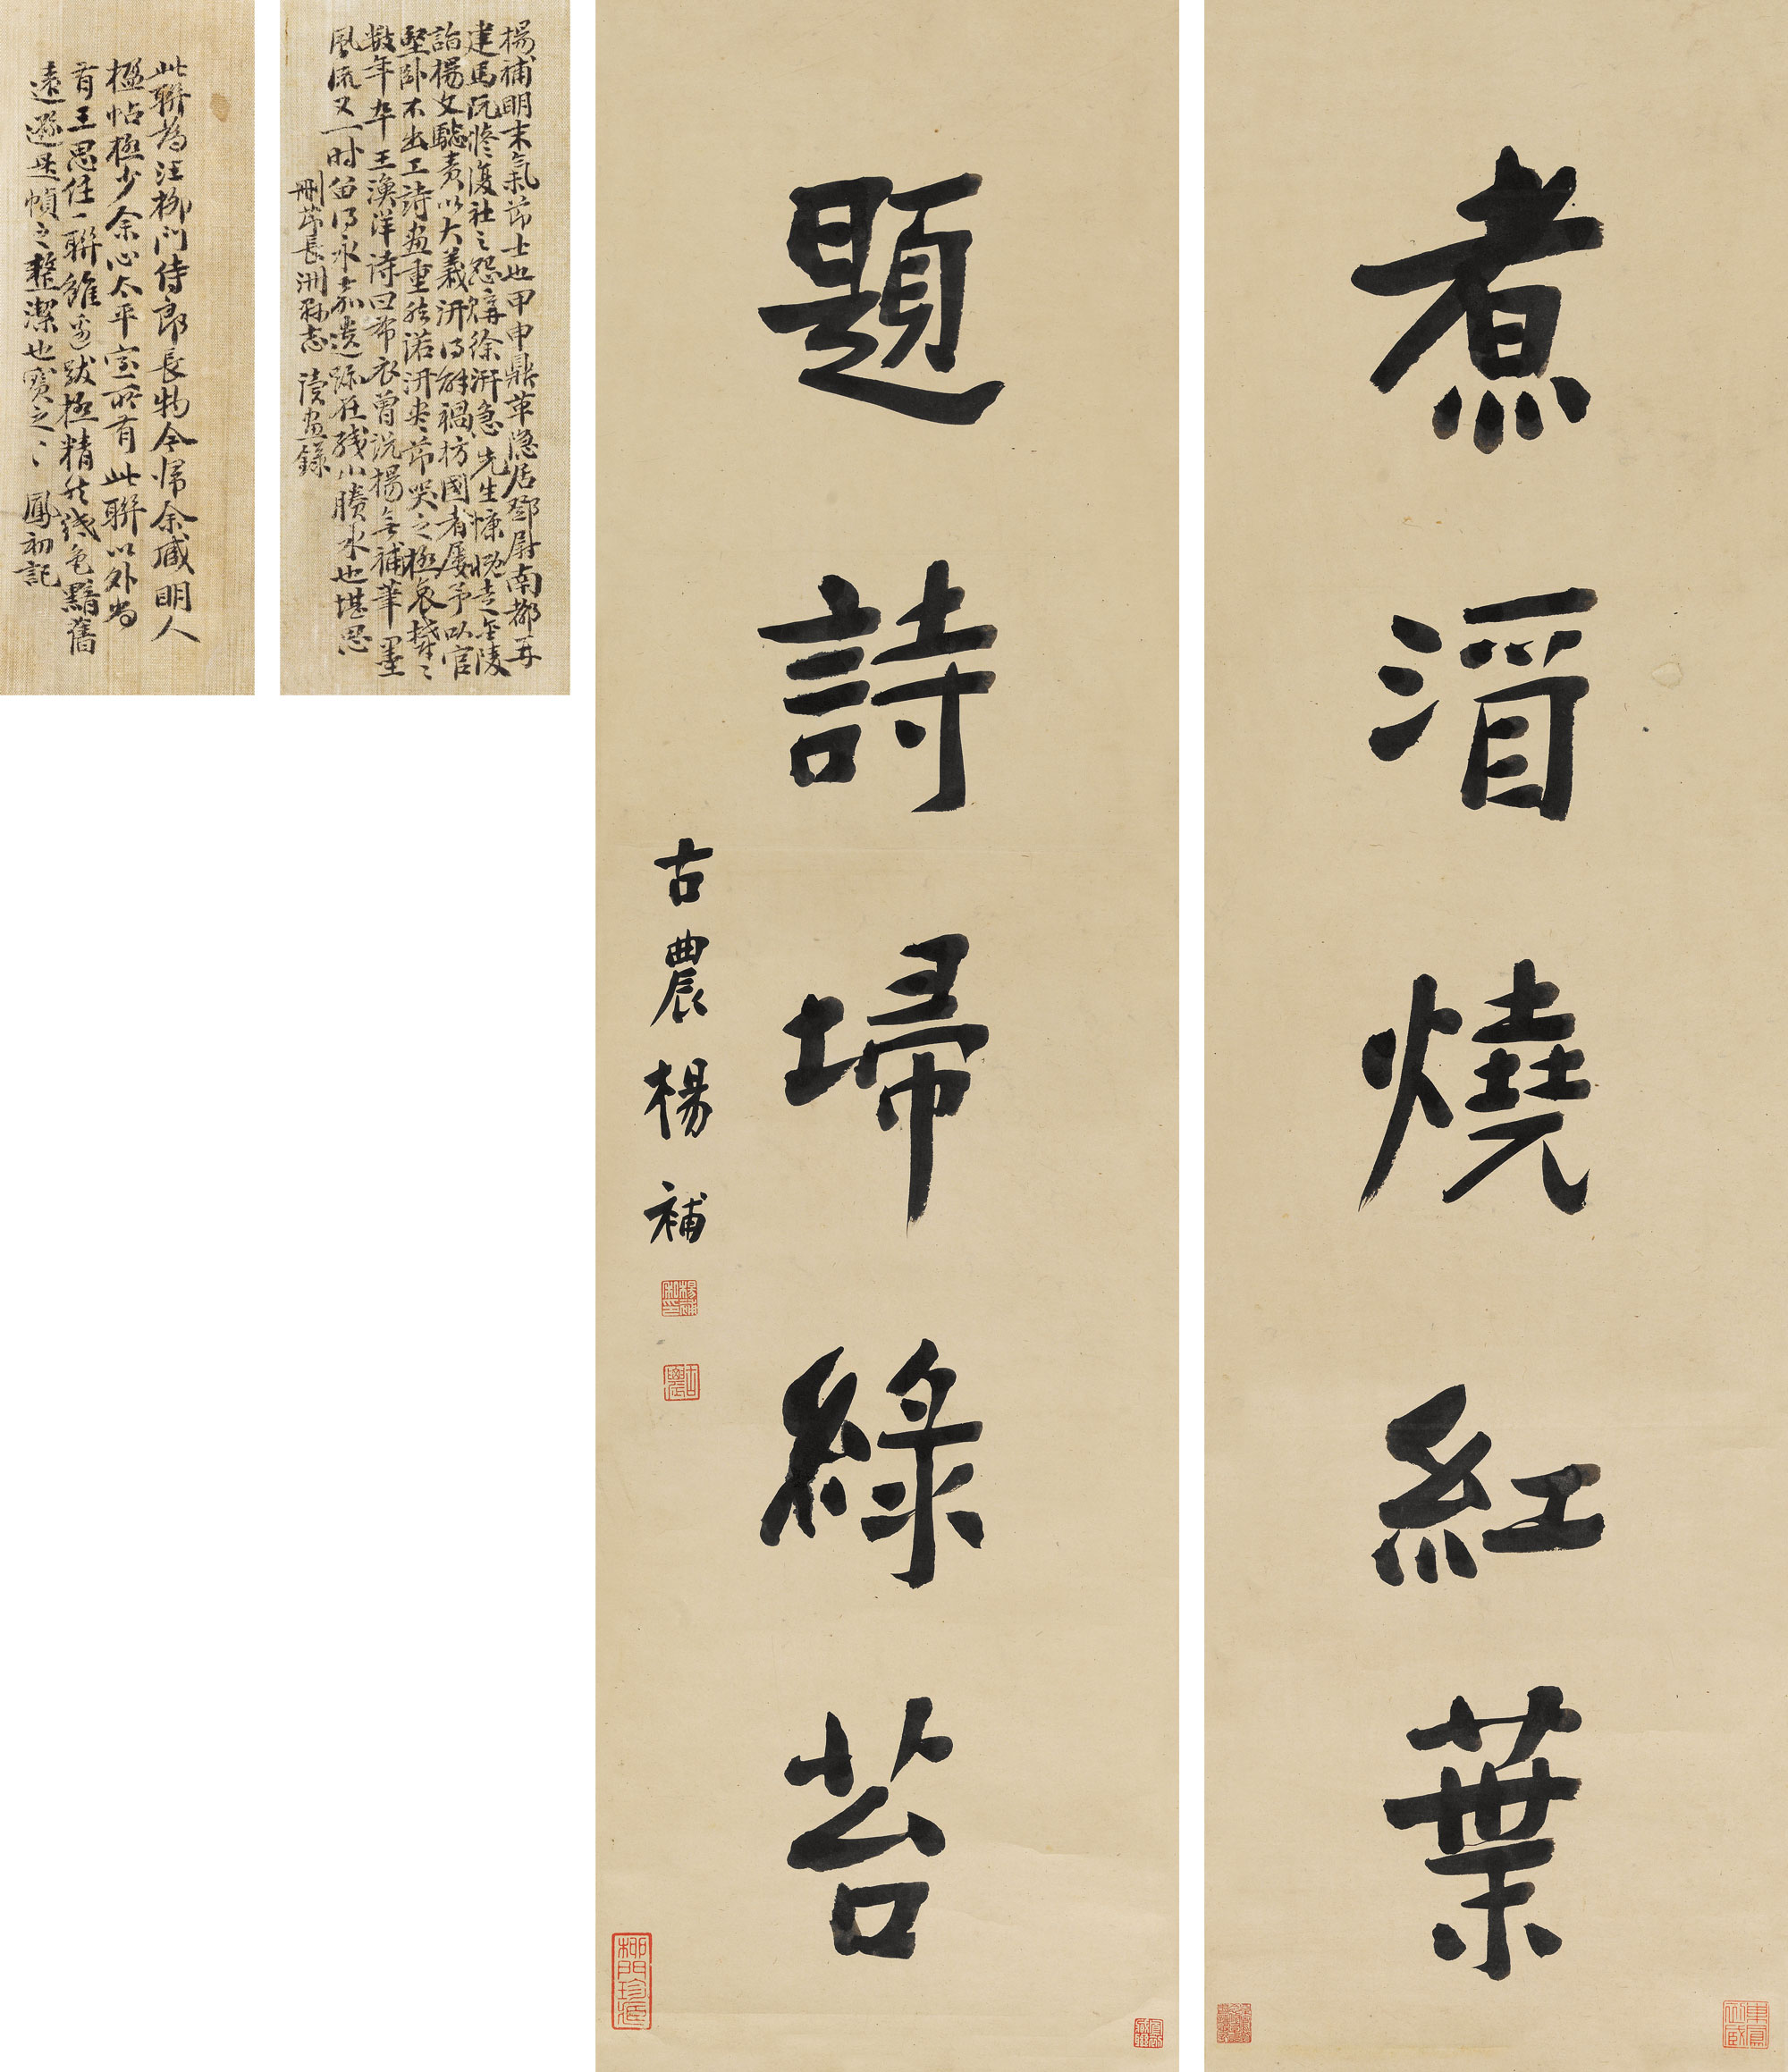 煮酒燒紅葉
題詩埽綠苔
古農楊補
楊補私印
古農
柳門珍藏
楊補明末氣節士也甲申鼎革隱居鄧尉南都再
建馬阮修復社之怨購徐汧急先生慷慨走金陵
詣楊文驄責以大義汧得解禍枋國者屢予以官
堅卧不出工詩畫重然諾汧盡節哭之極哀越
數年卒王漁洋詩曰布衣曾説楊無補筆墨
風流又一时留得永嘉遺跡在殘山賸水也堪思
刪節長洲縣志 讀畫錄
此聯為汪柳门侍郎長物今歸余藏明人
楹帖極少余心太平室所有此聯以外尚
有王思任一聯雖邊跋極精然紙色黯舊
遠遜是幀之整潔也寶之〻 鳳初記